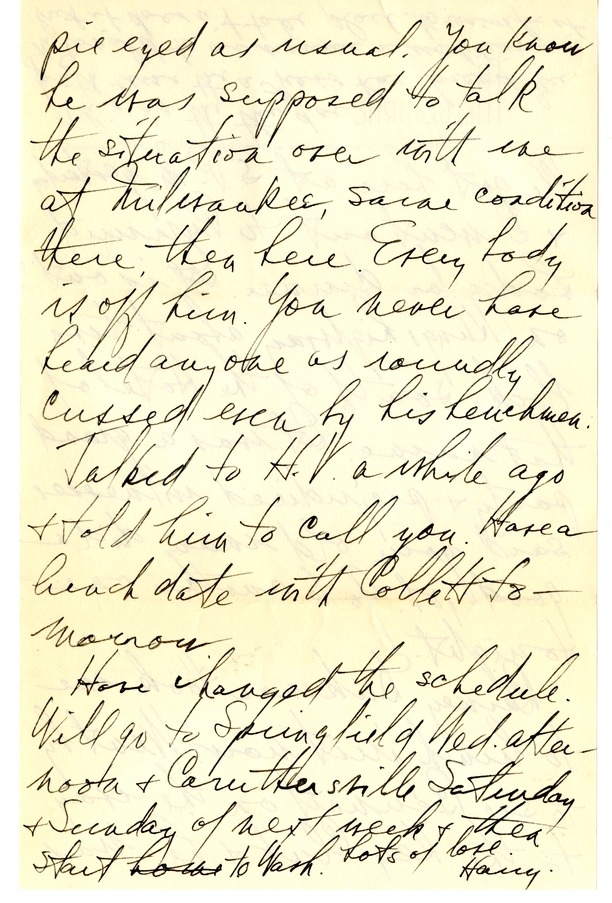 pie eyed as usual. You know
he was supposed to talk
the situation over with me
at Milwaukee, same condition
there, then here. Every body
is off him. You never have
heard anyone as roundly
cussed even by his henchmen.
Talked to H.V. a while ago
& told him to call you. Have a
lunch date with Collett to-
morrow
Have changed the schedule.
Will go to Springfield Wed. after-
noon & Caruthersville Saturday
& Sunday of next week & then
start home to Wash. Lots of love
Harry.